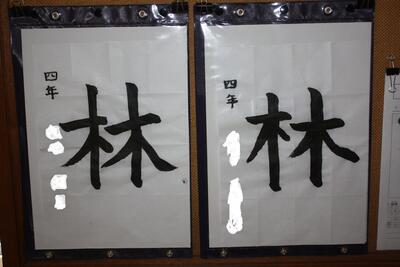 林
四年
林
四年